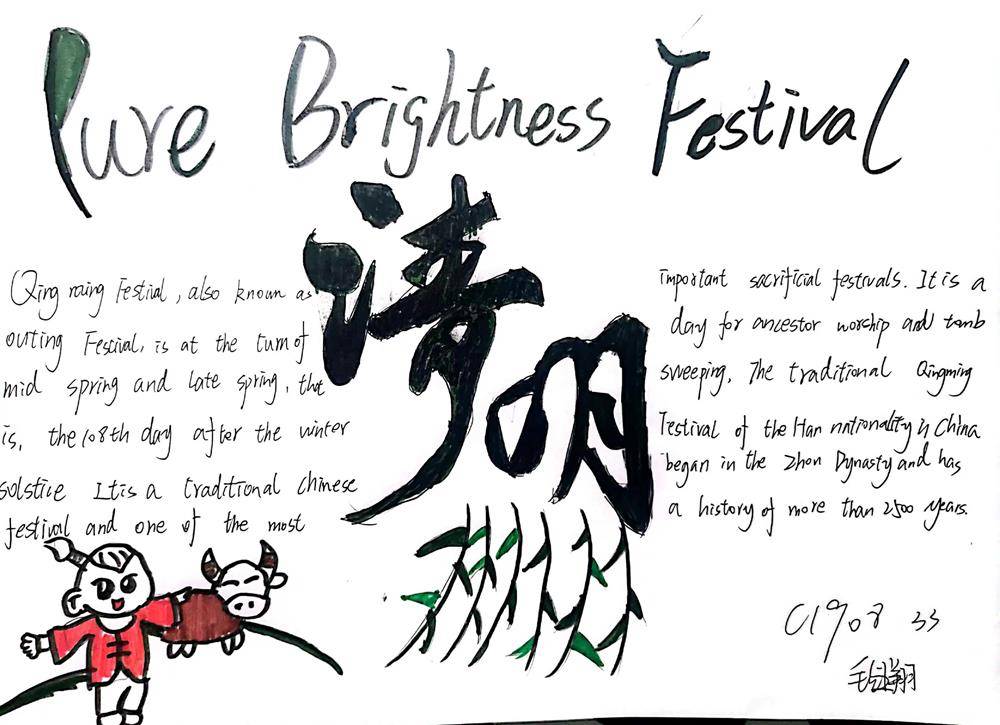 Pure Brightness Festival
清明
Qing ming Festival, also known as
outing Festival, is at the turn of
mid spring and late spring, that
is, the 108th day after the winter
solstice It is a traditional chinese
festival and one of the most
important sacrificial festivals. It is a
day for ancestor worship and tomb
sweeping. The traditional Qingming
Festival of the Han nationality in China
began in the Zhou Dynasty and has
a history of more than 2500 years.
C1908 33
毛
翔